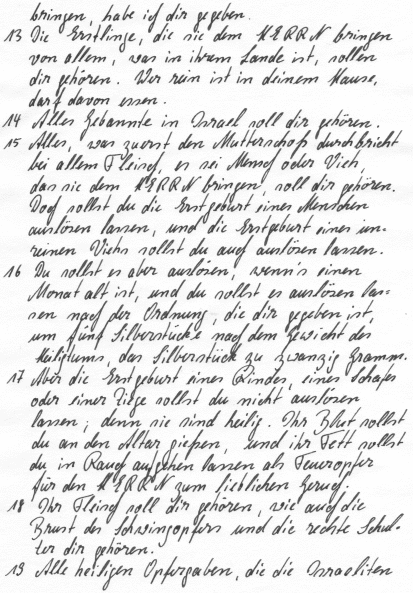 bringen, habe ich dir gegeben.
13 Die Erstlinge, die sie dem HERRN bringen
von allem, was in ihrem Lande ist, sollen
dir gehören. Wer rein ist in deinem Hause,
darf davon essen.
14 Alles Gebannte in Israel soll dir gehören.
15 Alles, was zuerst den Mutterschoß durchbricht
bei allem Fleisch, es sei Mensch oder Vieh,
das sie dem HERRN bringen, soll dir gehören.
Doch sollst du die Erstgeburt eines Menschen
auslösen lassen, und die Erstgeburt eines un-
reinen Viehs sollst du auch auslösen lassen.
16 Du sollst es aber auslösen, wenn's einen
Monat alt ist, und du sollst es auslösen las-
sen nach der Ordnung, die dir gegeben ist,
um fünf Silberstücke nach dem Gewicht des
Heiligtums, das Silberstück zu zwanzig Gramm.
17 Aber die Erstgeburt eines Rindes, eines Schafes
oder einer Ziege sollst du nicht auslösen
lassen; denn sie sind heilig. Ihr Blut sollst
du an den Altar gießen, und ihr Fett sollst
du in Rauch aufgehen lassen als Feueropfer
für den HERRN zum lieblichen Geruch.
18 Ihr Fleisch soll dir gehören, wie auch die
Brust des Schwingopfers und die rechte Schul-
ter dir gehören.
19 Alle heiligen Opfergaben, die die Israeliten